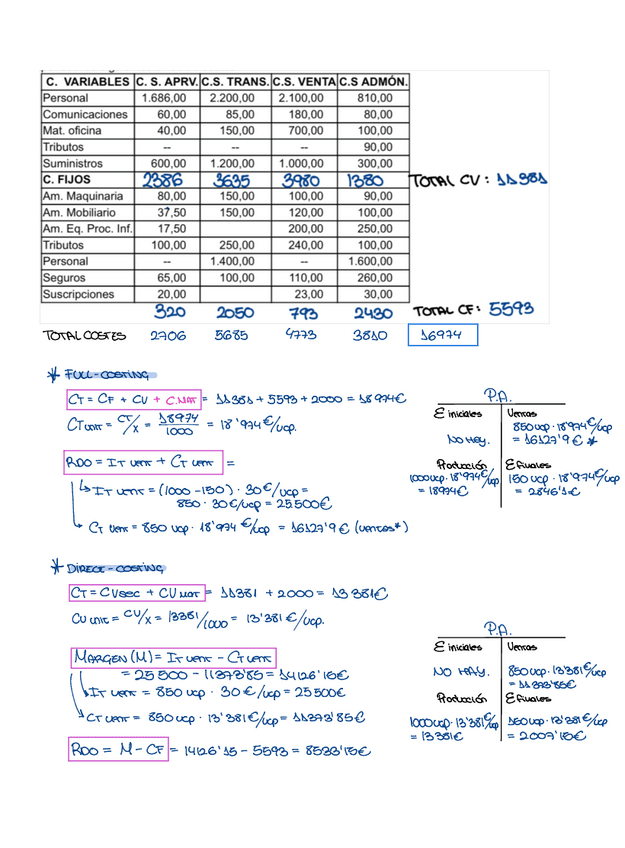 C. VARIABLES C. S. APRV. C.S. TRANS. C.S. VENTA C.S ADMÓN.
Personal 1.686,00 2.200,00 2.100,00 810,00
Comunicaciones 60,00 85,00 180,00 80,00
Mat. oficina 40,00 150,00 700,00 100,00
Tributos -- -- -- 90,00
Suministros 600,00 1.200,00 1.000,00 300,00
C. FIJOS 2386 3635 3980 1380 TOTAL CV: 11381
Am. Maquinaria 80,00 150,00 100,00 90,00
Am. Mobiliario 37,50 150,00 120,00 100,00
Am. Eq. Proc. Inf. 17,50 200,00 250,00
Tributos 100,00 250,00 240,00 100,00
Personal -- 1.400,00 -- 1.600,00
Seguros 65,00 100,00 110,00 260,00
Suscripciones 20,00 23,00 30,00
320 2050 793 2430 TOTAL CF: 5593
TOTAL COSTES 2706 5685 4773 3810 16974
* FULL-COSTING
CT = CF + CV + C.MAT = 11381 + 5593 + 2000 = 18974€
CT unit = CT/X = 18974/1000 = 18'974 €/ucp.
RDO = IT vent + CT vent =
IT vent = (1000 - 150) · 30€/ucp =
850 · 30€/ucp = 25500€
CT vent = 850 ucp · 18'974 €/ucp = 16127'9 € (ventas*)
P.A.
E iniciales Ventas
850 ucp · 18'974€/ucp
No Hay. = 16127'9€ *
Producción E finales
1000 ucp · 18'974€/ucp 150 ucp · 18'974€/ucp
= 18974€ = 2846'1€
* DIRECT-COSTING
CT = CVsec + CV MAT = 11381 + 2000 = 13381€
CV unit = CV/X = 13381/1000 = 13'381 €/ucp.
MARGEN (M) = IT vent - CT vent
= 25500 - 11373'85 = 14126'15€
IT vent = 850 ucp · 30 €/ucp = 25500€
CT vent = 850 ucp · 13'381€/ucp = 11373'85€
RDO = M - CF = 14126'15 - 5593 = 8533'15€
P.A.
E iniciales Ventas
NO HAY. 850 ucp · 13'381€/ucp
= 11373'85€
Producción E finales
1000 ucp · 13'381€/ucp 150 ucp · 13'381€/ucp
= 13381€ = 2007'15€